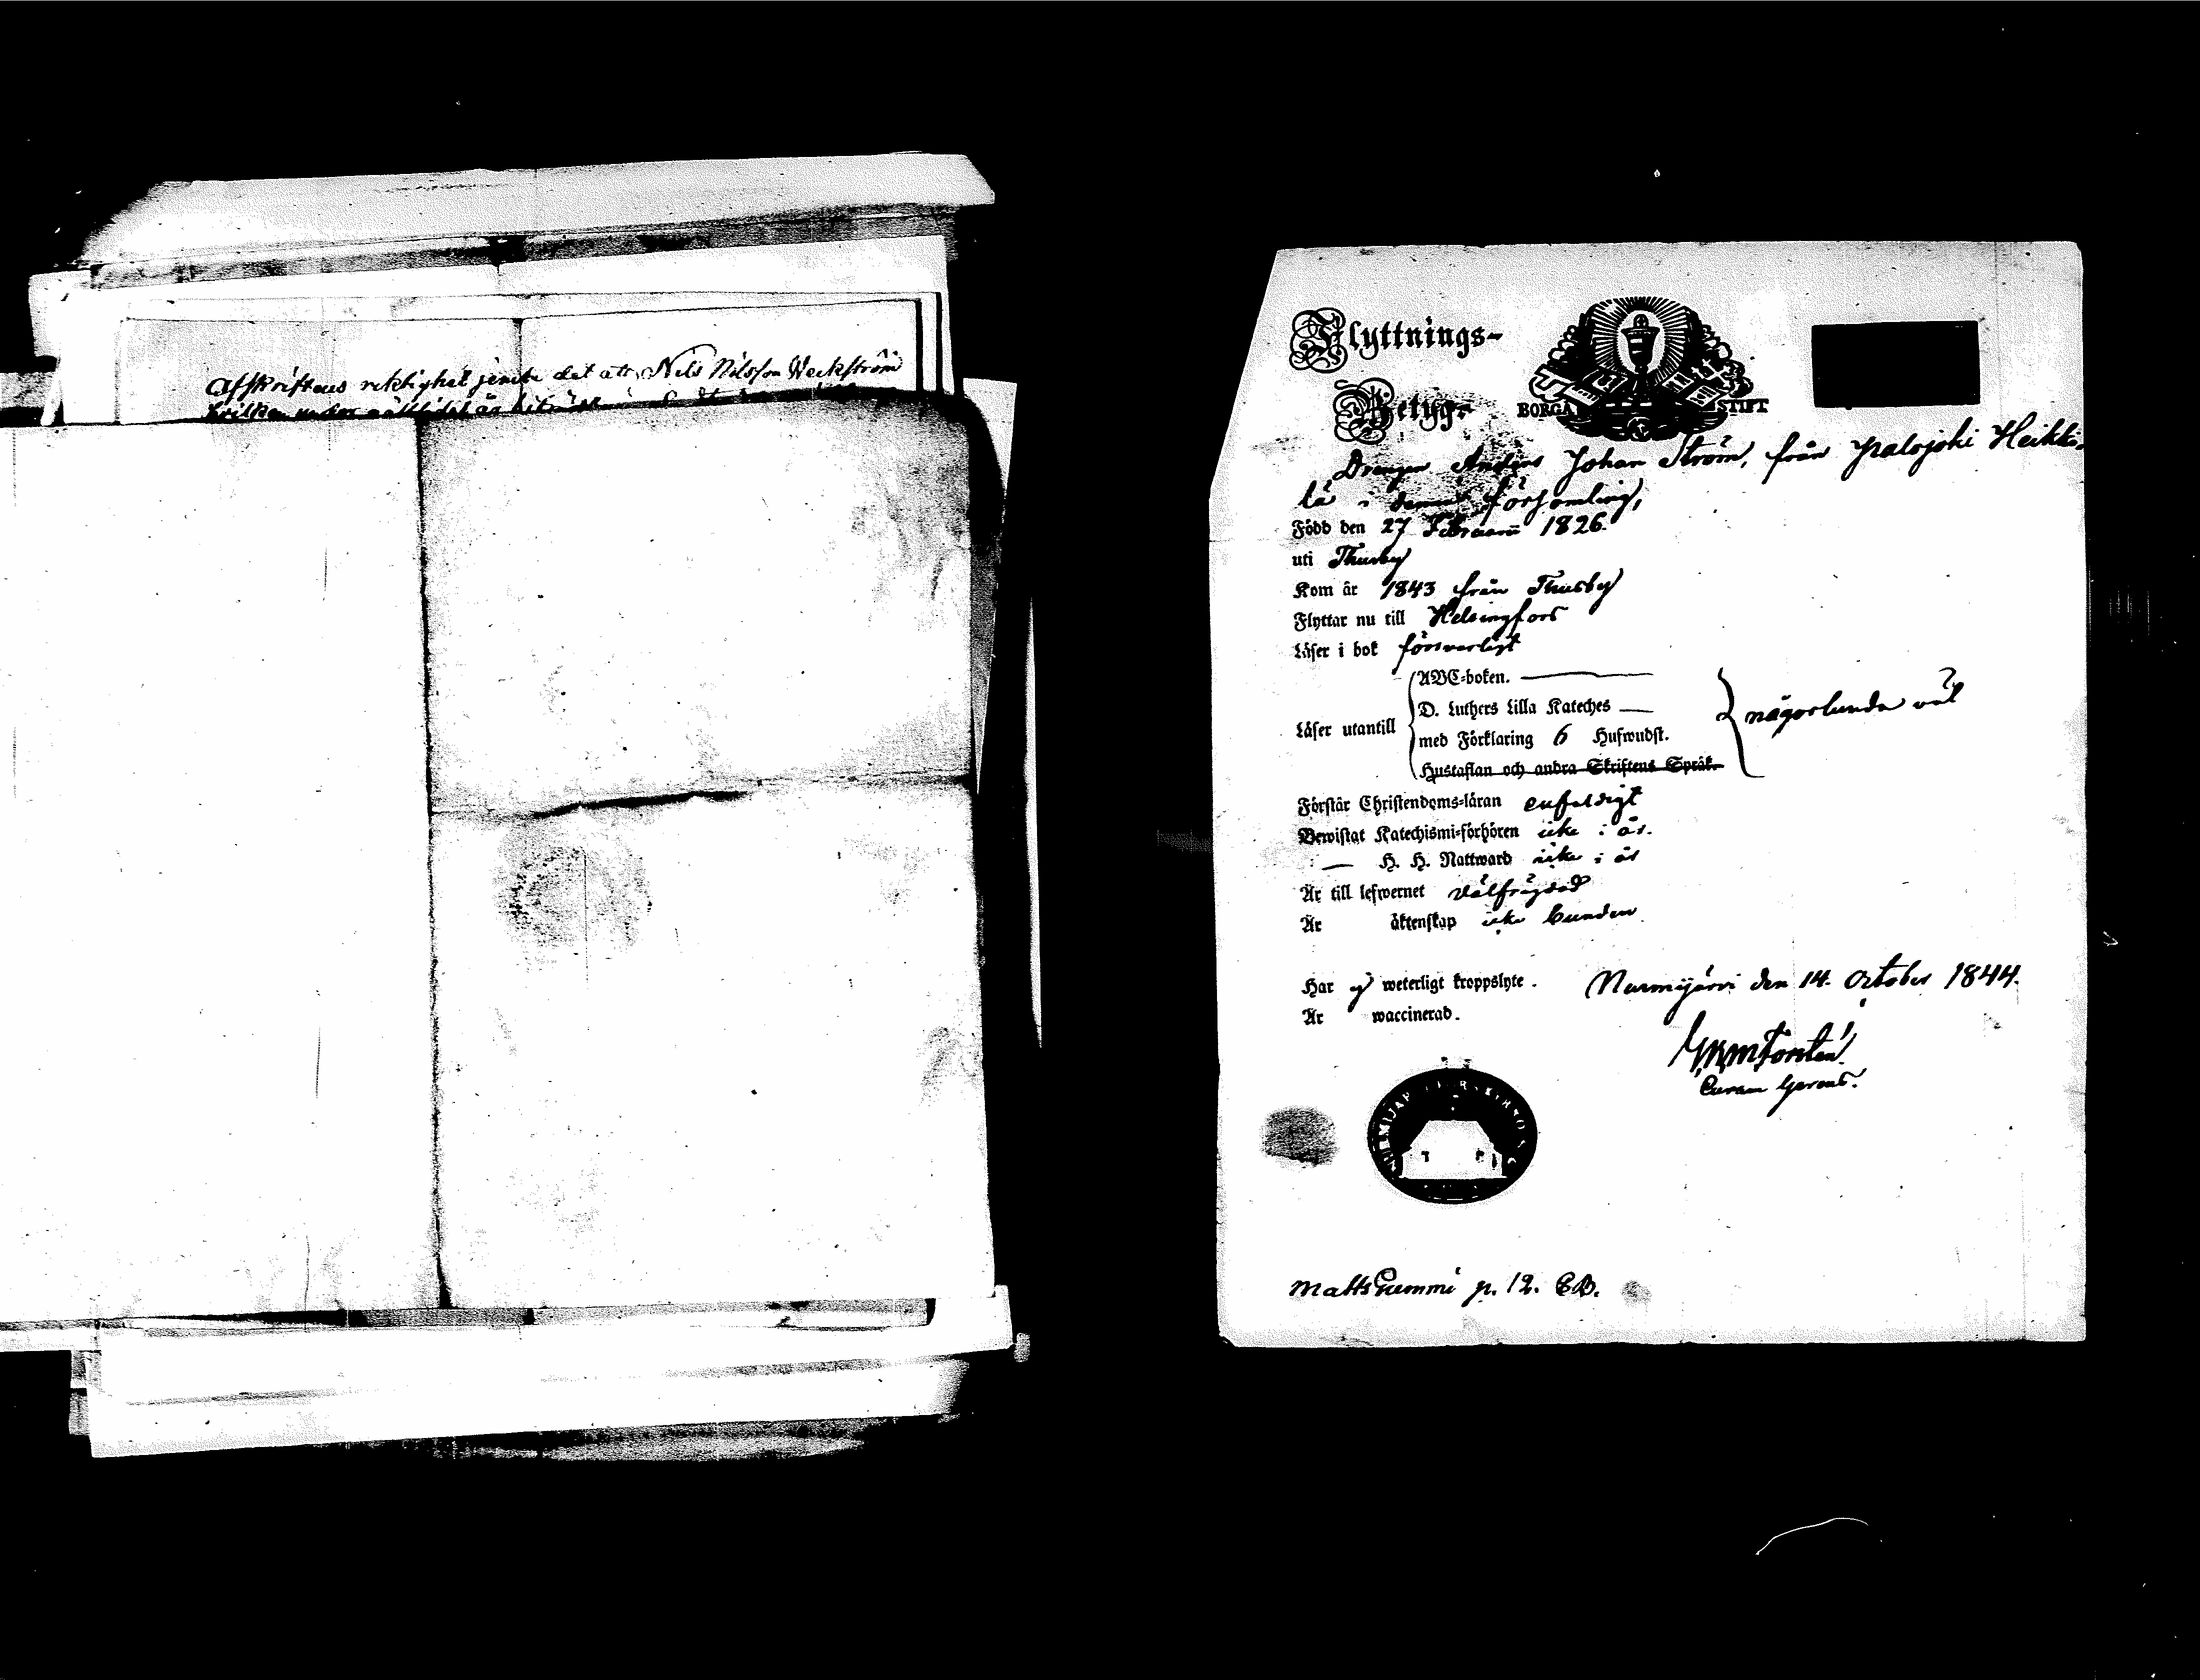 Afskriftens riktighet jemte det att Nils Nilsson Weckström
Flyttnings-
Betyg.
BORGÅ STIFT
Drengen Anders Johan Ström, från Palojoki Heikki-
lä i denna församling,
Född den 27 Februarii 1826.
uti Thusby
Kom år 1843 från Thusby
Flyttar nu till Helsingfors
Läser i bok försvarligt
Läser utantill
ABC-boken. —
D. Luthers Lilla Kateches —
med Förklaring 6 Hufwudst.
Hustaflan och andra Skriftens Språk.
någorlunda väl
Förstår Christendoms-läran enfaldigt
Bewistat Katechismi-förhören icke i år.
— H. H. Nattward icke i år
Är till lefwernet välfrägdad
Är äktenskap icke bunden
Har ej weterligt kroppslyte.
Nurmijärvi den 14. October 1844.
Är waccinerad.
Curam Gerens.
Matts p. 12. CB.